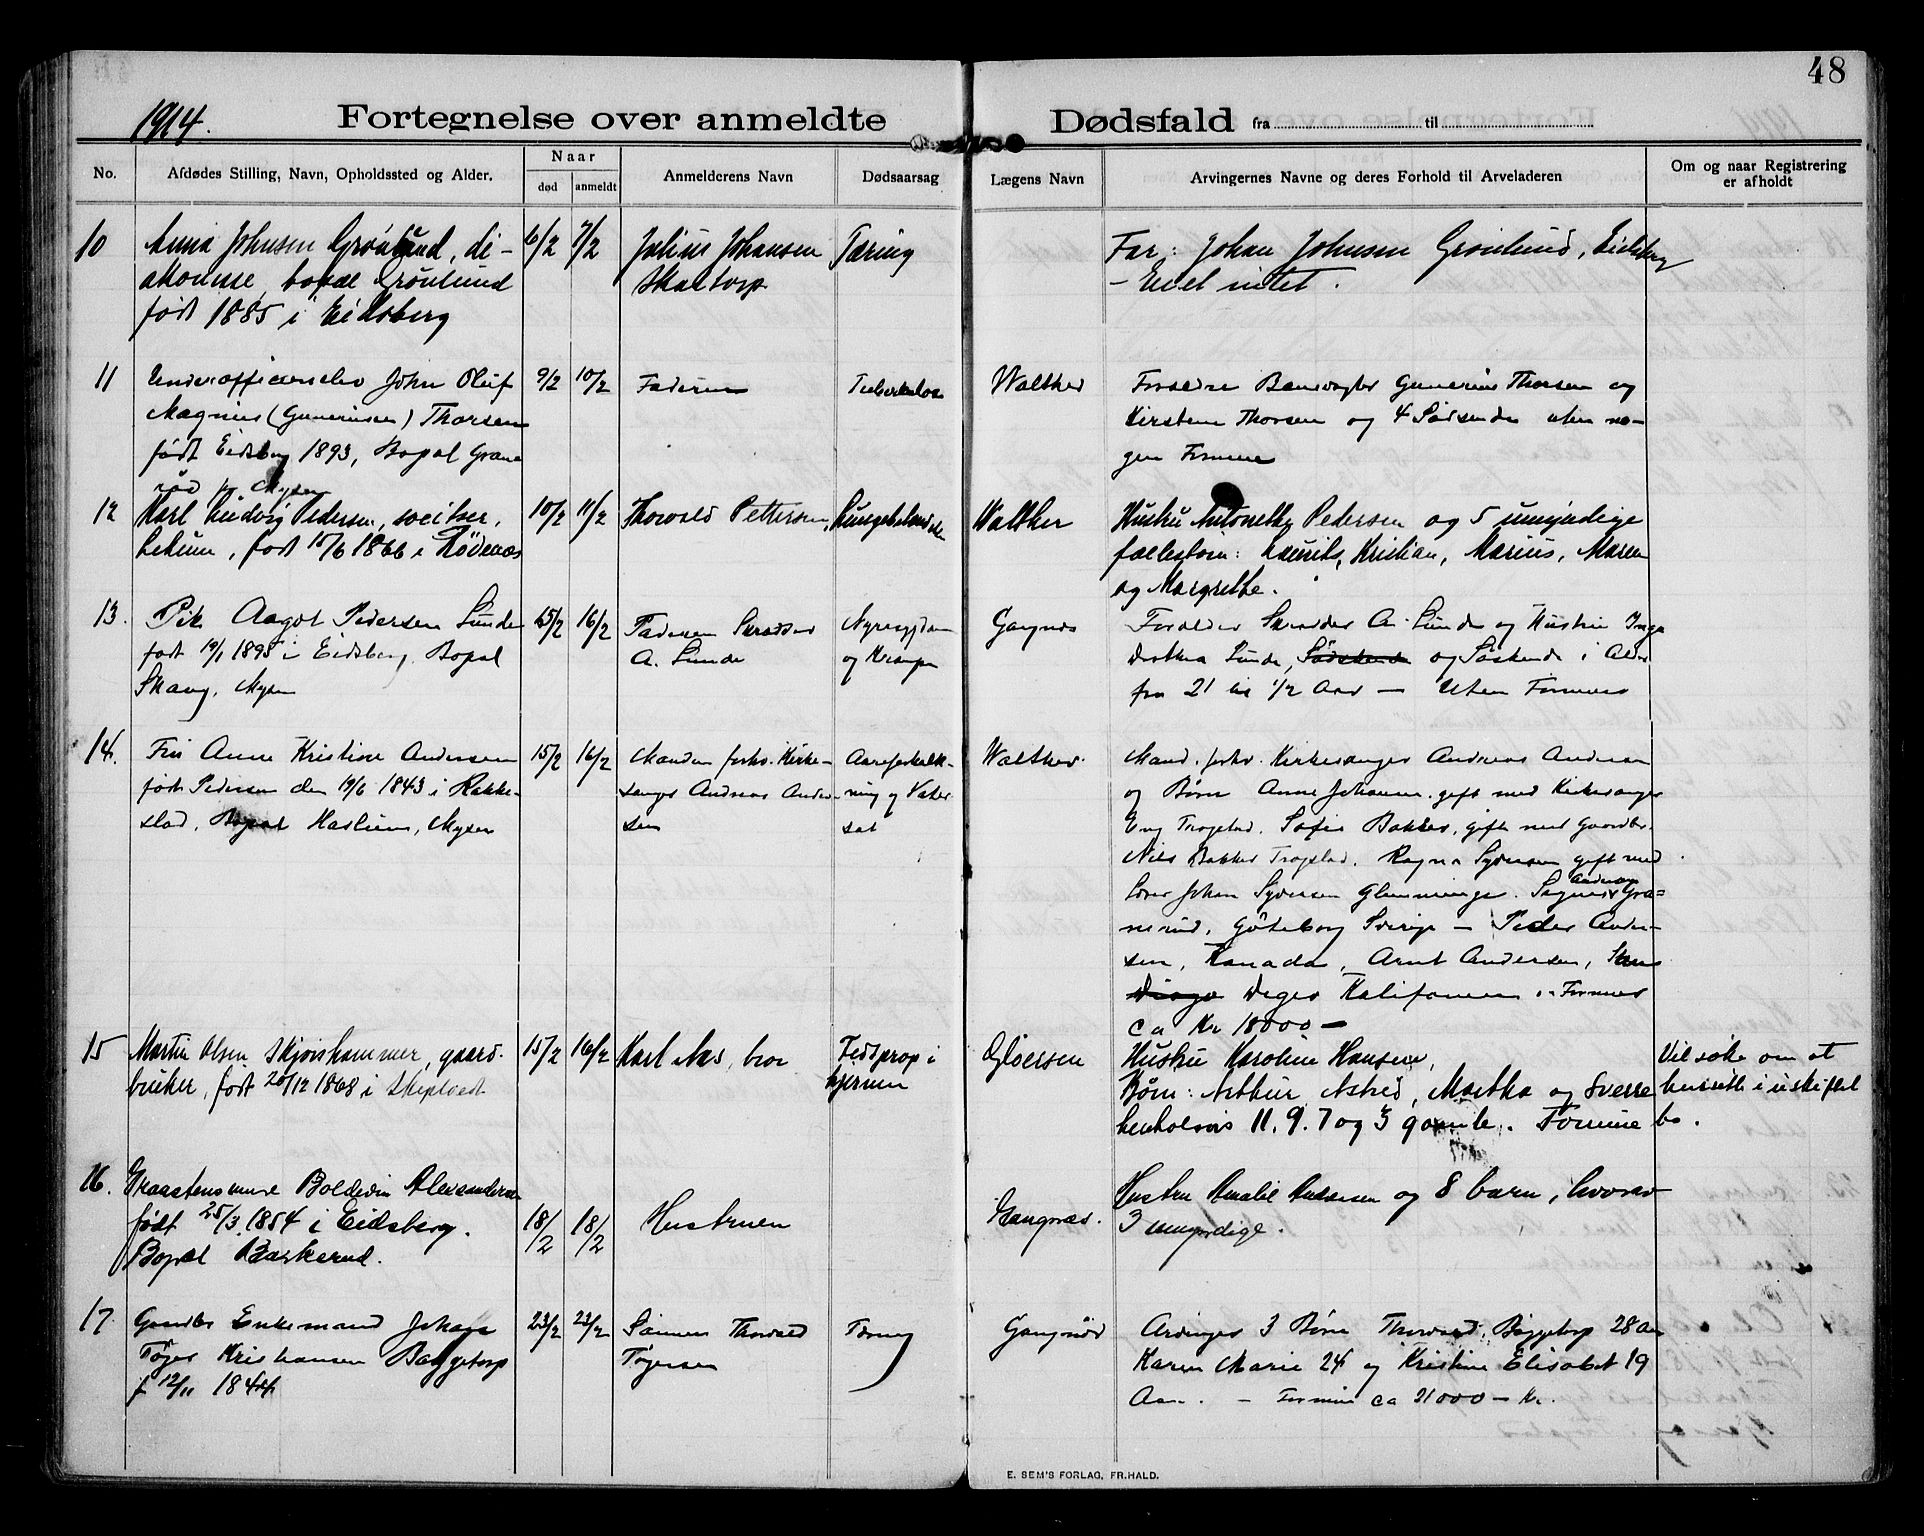 48
1914.
Fortegnelse over anmeldte Dødsfald fra til
No.
Afdødes Stilling, Navn, Opholdssted og Alder.
Naar
død
anmeldt
Anmelderens Navn
Dødsaarsag
Lægens Navn
Arvingernes Navne og deres Forhold til Arveladeren
Om og naar Registrering
er afholdt
10
Anna Johnsen Grönlund, di-
akonisse, bopæl Grönlund
født 1885 i Eidsberg
6/2
7/2
Julius Johansen
Skaltorp
Tæring
Far: Johan Johnsen Grönlund, Eidsberg
- Eiet intet.
11
Underofficerselev John Oluf
Magnus (Guneriusen) Thorsen
født Eidsberg 1893, Bopæl Grane
rud pr Mysen
9/2
10/2
Faderen
Tuberkulose
Walther
Forældre Banevogter Gunerius Thorsen og
Kirstine Thorsen og 4 Sødskende uten no-
gen Formue
12
Karl Ludvig Pedersen, sveitser,
Lekum, født 15/6 1866 i Rödenæs
10/2
11/2
Thorvald Pettersen
Lungebetændelse
Walther
Hustru Antonette Pedersen og 5 umyndige
fællesbørn: Laurits, Kristian, Marius, Maren
og Margrethe.
13.
Pik. Aagot Pedersen Lunde
født 19/1 1895 i Eidsberg. Bopæl
Skaug, Mysen
15/2
16/2
Faderen Skrædder
A. Lunde
Nyresygdom
og Krampe
Gangnæs
Forældre Skrædder A. Lunde og Hustru Inga
Dorthea Lunde, Sødskende og Søskende i Alder
fra 21 til 1/2 Aar — Uten Formue
14.
Fru Anne Kristine Andersen
født Pedersen den 19/6 1843 i Rakke-
stad, Bopæl Haslum, Mysen
15/2
16/2
Manden forhv. Kirke-
sanger Andreas Ander-
sen
Aareforkalk-
ning og Vater
sot
Walther.
Mand, forhv. Kirkesanger Andreas Andersen
og Børn Anne Johanne, gift med Kirkesanger
Eng Trøgstad. Sofie Bakker, gift med Gaardbr.
Nils Bakker Trøgstad. Ragna Syversen gift med
Lærer Johan Syversen Glemminge. Andersen
Gra-
nerud, Göteborg Sverige — Peder Ander-
sen, Kanada, Arnt Andersen, San
Diego Diego Kalifornien. Formue
ca Kr 18000 —
15
Martin Olsen Skjørshammer, gaard-
bruker, født 20/12 1868 i Skiptvedt
15/2
16/2
Karl Aas, bror
Fedtprop i
hjernen
Gløersen
Hustru Karoline Hansen,
Børn: Arthur, Astrid, Martha og Sverre
henholsvis 11. 9. 7 og 3 gamle. Formue
Vil søke om at
hensitte i uskiftet
bo.
16.
Graastensmurer Boldevin Alexandersen
født 25/3 1854 i Eidsberg.
Bopæl Baskerud.
18/2
18/2
Hustruen
Gangnæs.
Hustru Amalie Andersen og 8 barn, hvorav
3 umyndige.
17.
Gaardbr Enkemand Johan
Tøger Kristiansen Baggetorp
f 12/11 1844
23/2
23/2
Sønnen Thorvald
Tøgersen
Tæring
Gangnæs
Arvinger 3 Børn Thorvald, Baggetorp 28 Aar
Karen Marie 24 og Kristine Elisabet 19
Aar. — Formue ca 21000 — Kr.
E. SEM'S FORLAG, FR.HALD.